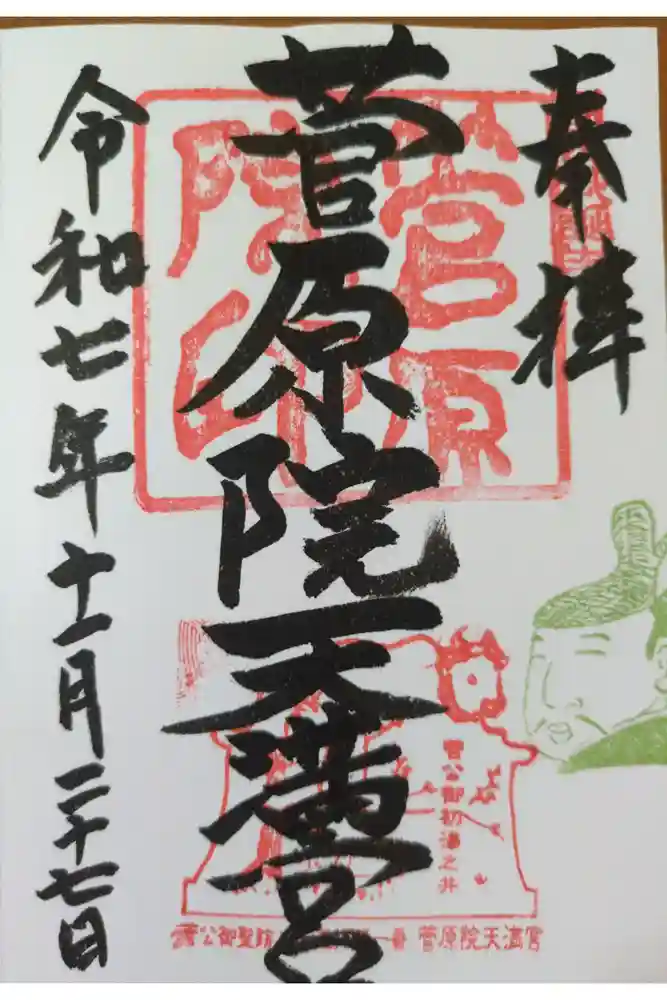 奉拝
菅原院天満宮
令和七年十一月二十七日
菅原院印
菅公御初湯之井
菅公御聖跡 一番 菅原院天満宮